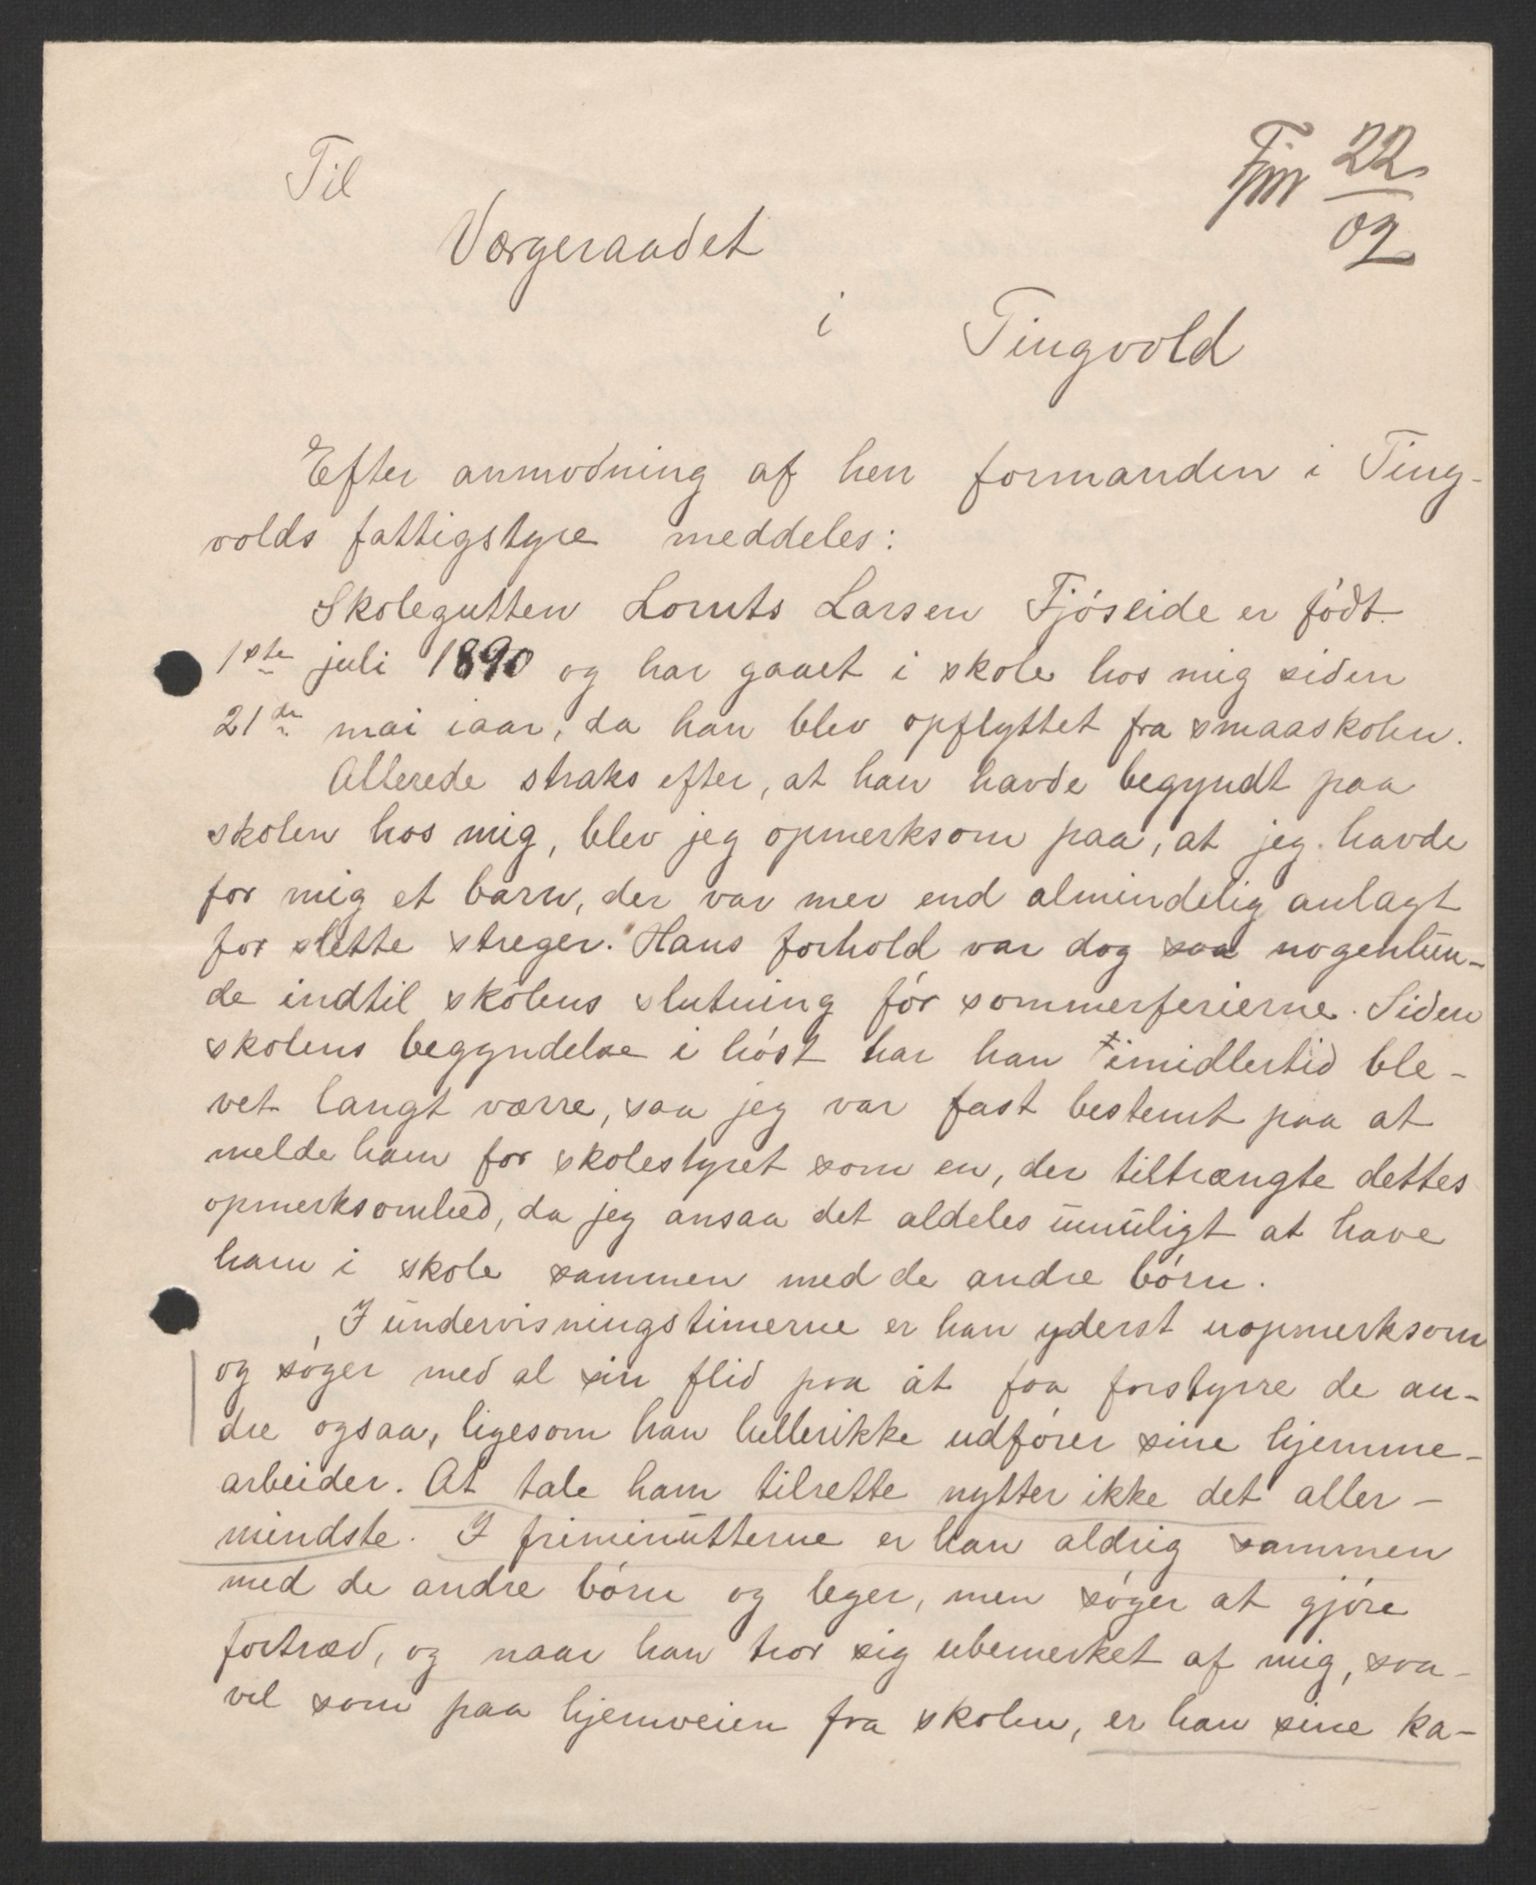 Til
Fjm 22/02
Værgeraadet
i Tingvold
Efter anmodning af herr formanden i Ting-
volds fattigstyre meddeles:
Skolegutten Loruts Larsen Fjøseide er født
1ste juli 1890 og har gaaet i skole hos mig siden
21de mai iaar, da han blev opflyttet fra smaaskolen.
Allerede straks efter, at han havde begyndt paa
skolen hos mig, blev jeg opmerksom paa, at jeg havde
for mig et barn, der var mer end almindelig anlagt
for slette streger. Hans forhold var dog saa nogenlun-
de indtil skolens slutning før sommerferierne. Siden
skolens begyndelse i høst har han imidlertid ble-
vet langt værre, saa jeg var fast bestemt paa at
melde ham for skolestyret som en, der tiltrængte dettes
opmerksomhed, da jeg ansaa det aldeles umuligt at have
ham i skole sammen med de andre børn.
I undervisningstimerne er han yderst uopmerksom
og søger med al sin flid paa at faa forstyrre de an-
dre ogsaa, ligesom han hellerikke udfører sine hjemme-
arbeider. At tale ham tilrette nytter ikke det aller-
mindste. I friminutterne er han aldrig sammen
med de andre børn og leger, men søger at gjøre
fortræd, og naar han tror sig ubemerket af mig, saa-
vel som paa hjemveien fra skolen, er han sine ka-